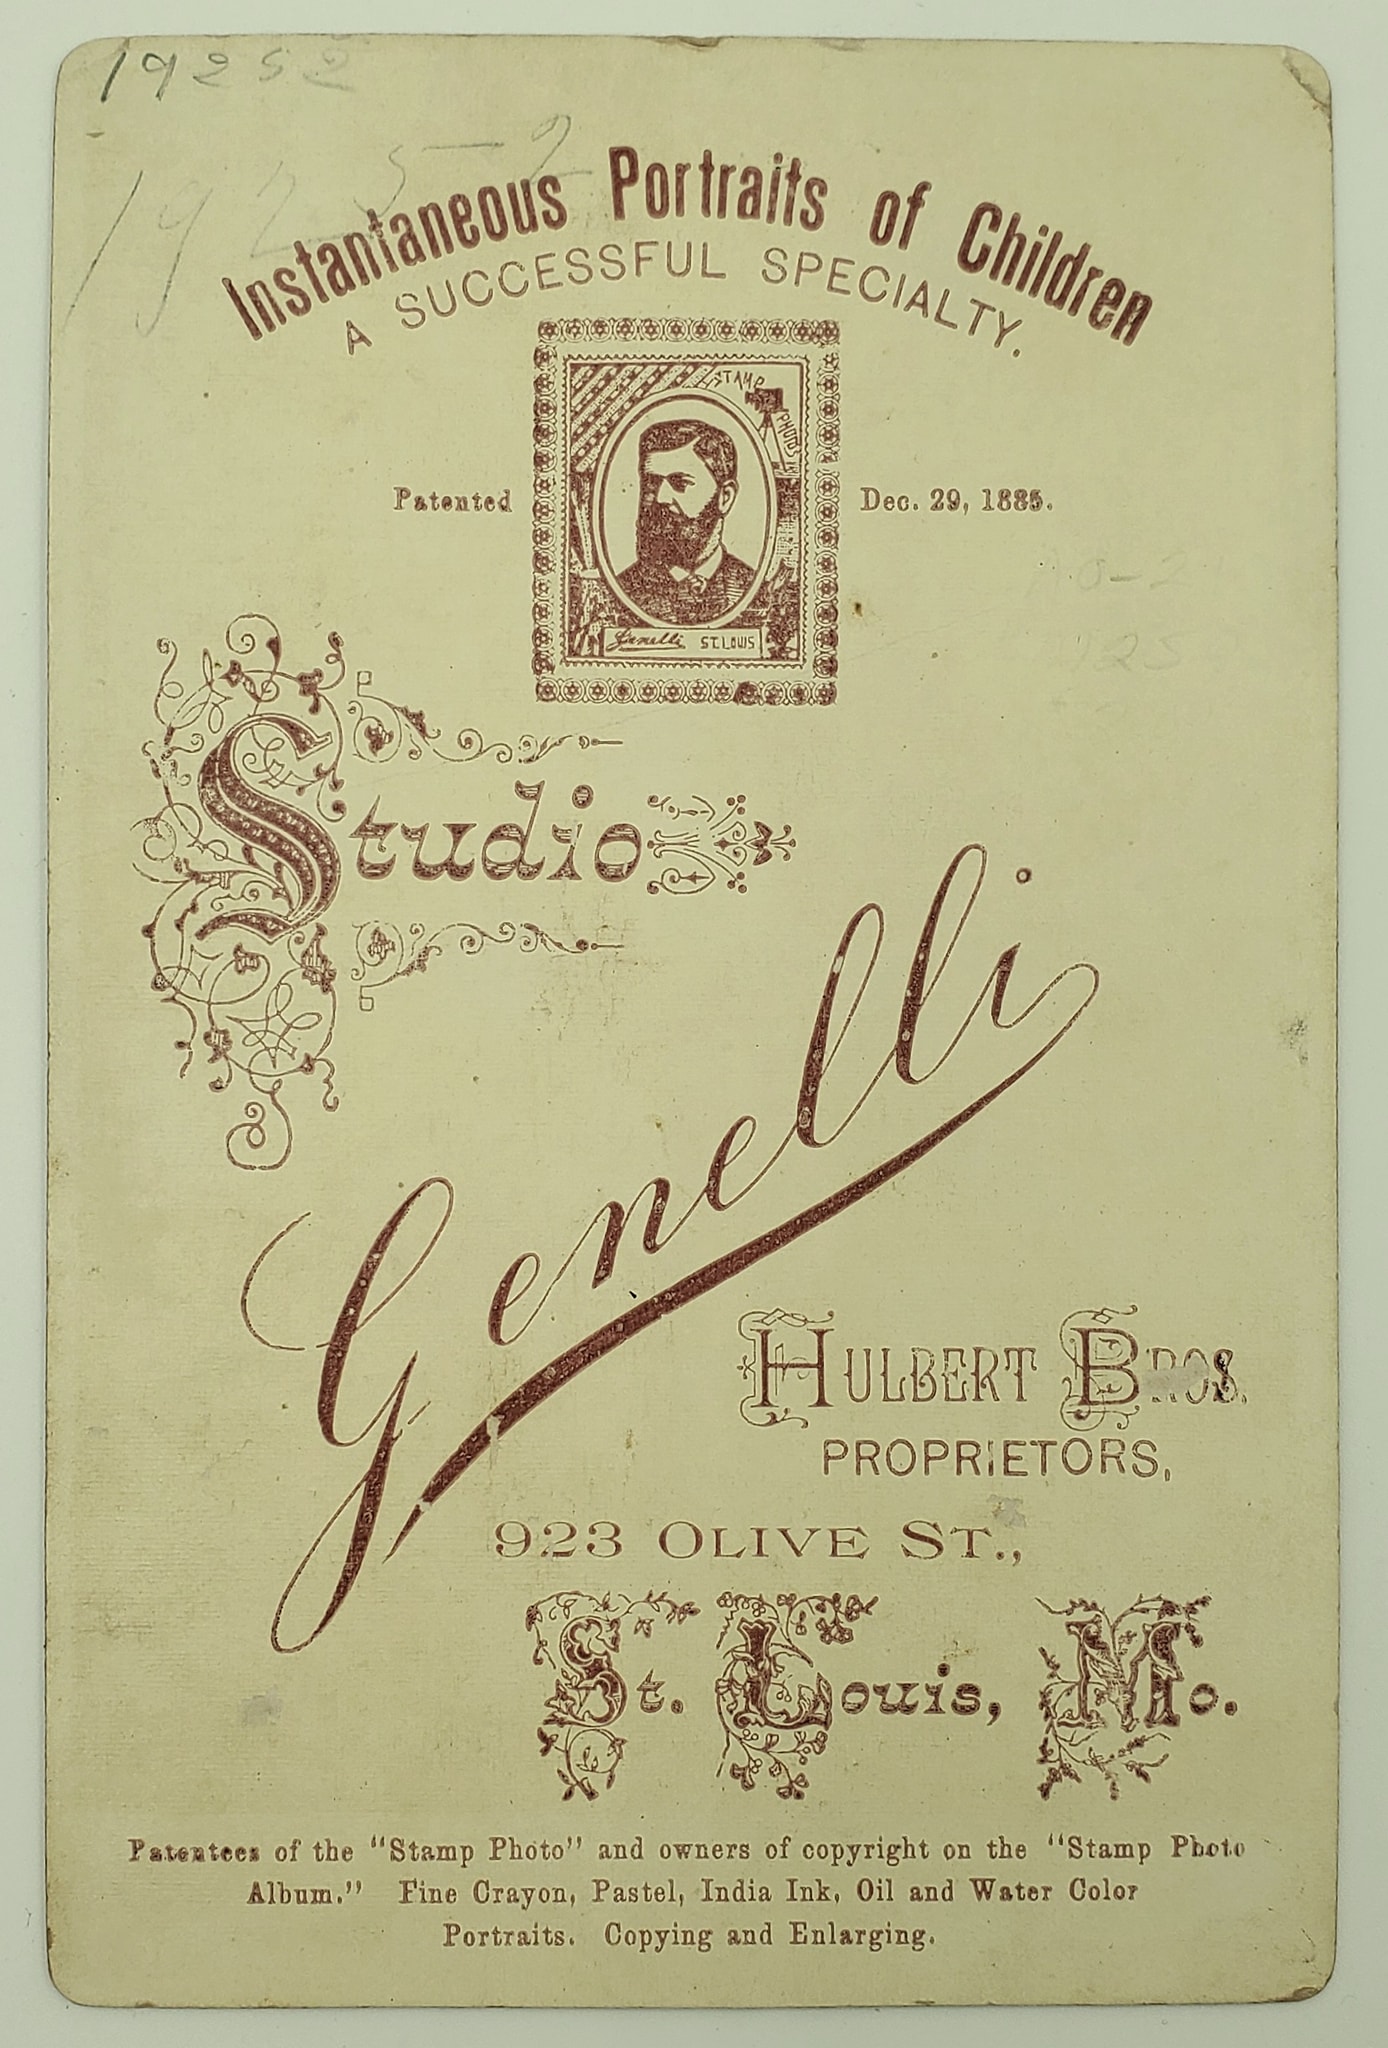 19252
19252
Instantaneous Portraits of Children
A SUCCESSFUL SPECIALTY.
STAMP
PHOTO
Patented Dec. 29, 1885.
Genelli ST. LOUIS
Studio
Genelli
HULBERT BROS.
PROPRIETORS,
923 OLIVE ST.,
St. Louis, Mo.
Patentees of the "Stamp Photo" and owners of copyright on the "Stamp Photo
Album." Fine Crayon, Pastel, India Ink, Oil and Water Color
Portraits. Copying and Enlarging.